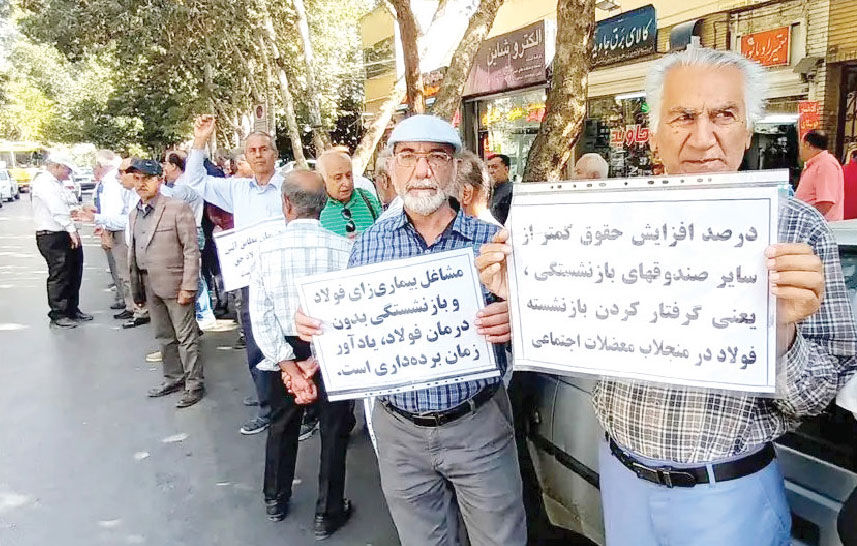 درصد افزایش حقوق کمتر از
سایر صندوقهای بازنشستگی ،
یعنی گرفتار کردن بازنشسته
فولاد در منجلاب معضلات اجتماعی
مشاغل بیماری‌زای فولاد
و بازنشستگی بدون
درمان فولاد، یادآور
زمان برده‌داری است.
الکترو شاین
کالای برق
جاوید